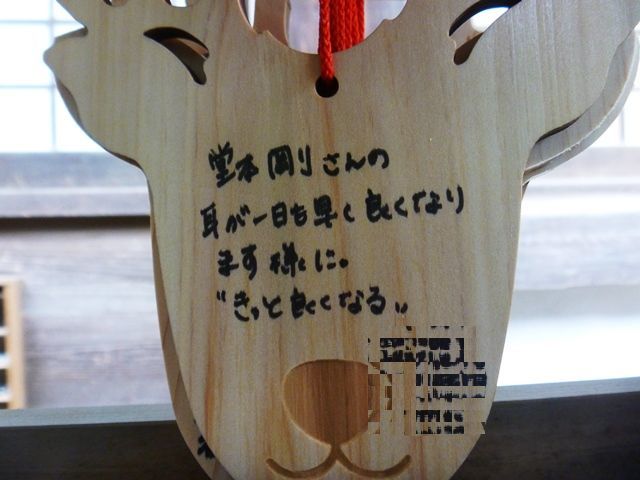 堂本剛さんの
耳が一日も早く良くなり
ます様に。
"きっと良くなる"